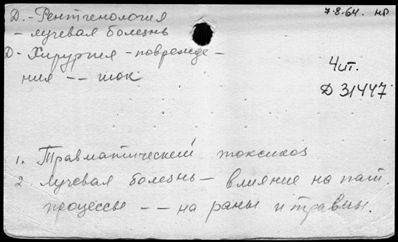 Д.-Рентгенология
- лучевая болезнь
Д- Хирургия - поврежде-
ния -- шок
7.8.64. нр
4ит.
Д 31447
1. Травматический токсикоз
2 Лучевая болезнь - влияние на пат.
процессы -- на раны и травмы.